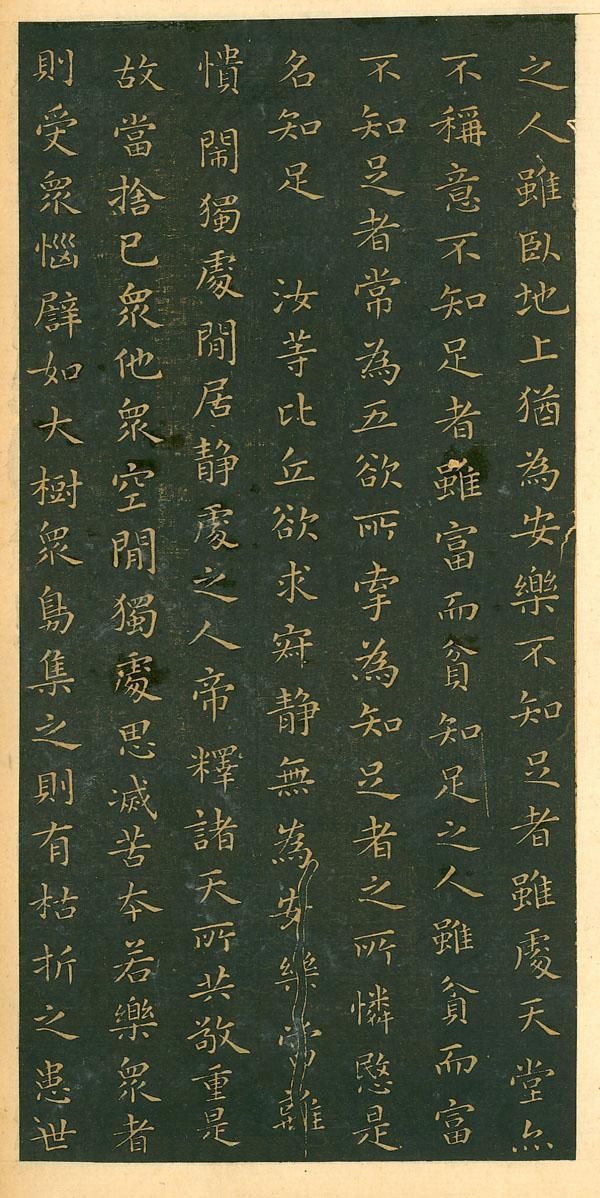 之人雖臥地上猶為安樂不知足者雖處天堂亦
不稱意不知足者雖富而貧知足之人雖貧而富
不知足者常為五欲所牽為知足者之所憐愍是
名知足　汝等比丘欲求寂靜無為安樂當離
憒閙獨處閒居靜處之人帝釋諸天所共敬重是
故當捨已眾他眾空閒獨處思滅苦本若樂眾者
則受眾惱譬如大樹眾鳥集之則有枯折之患世